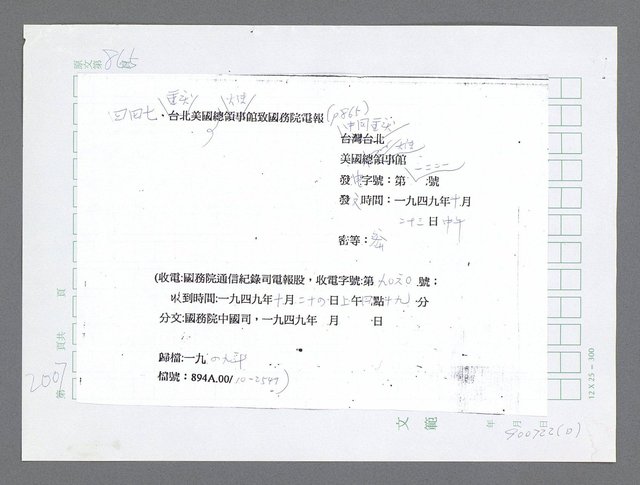 原文第865頁
四四七、台北美國總領事館致國務院電報(p865)
台灣台北
美國總領事館
發電字號：第 號
發文時間：一九四九年十月
二十三日中午
密等：密
(收電:國務院通信紀錄司電報股，收電字號:第 號：
收到時間:一九四九年十月二十四日上午 點十九分
分文:國務院中國司，一九四九年 月 日
歸檔:一九四九年
檔號：894A.00/10-2549)
第 頁共 頁
2007
文 範
年 月 日
900722(0)
12 X 25 - 300